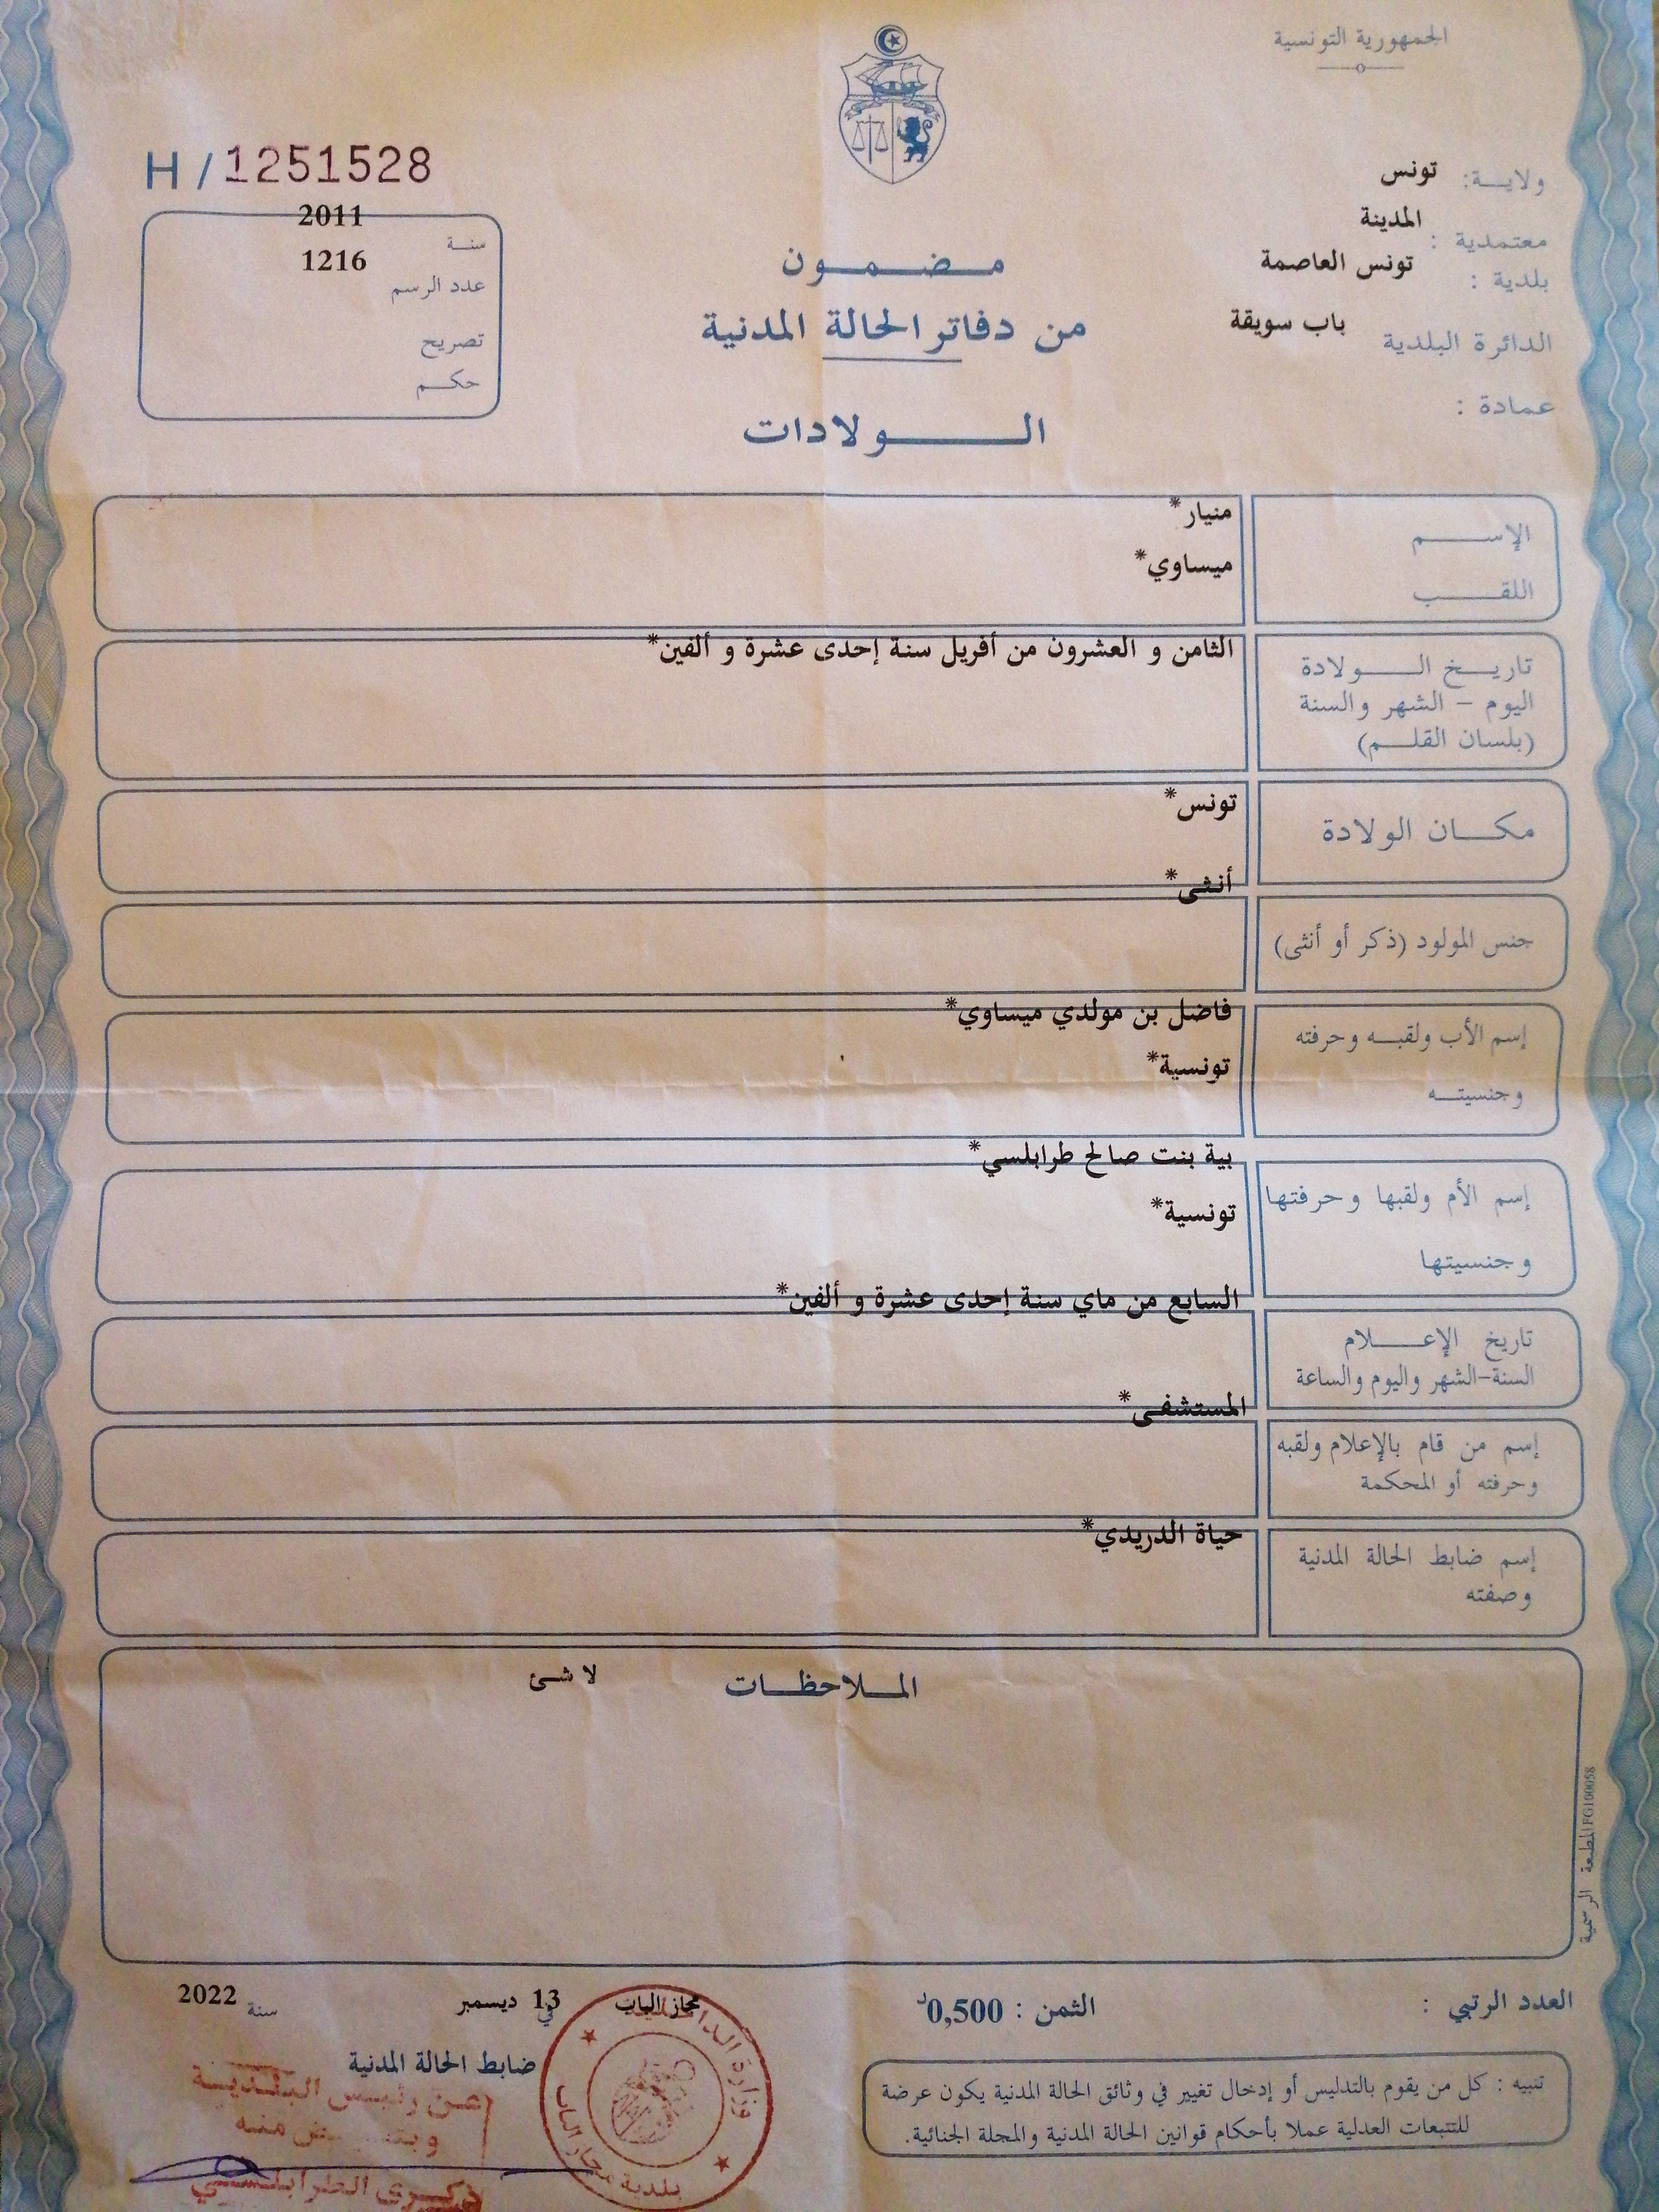 الجمهورية التونسية
ولاية: تونس
معتمدية : المدينة
بلدية : تونس العاصمة
الدائرة البلدية باب سويقة
عمادة :
H / 1251528
سنة 2011
عدد الرسم 1216
تصريح
حكم
مضمون
من دفاتر الحالة المدنية
الولادات
الإسم منيار*
اللقب ميساوي*
تاريخ الولادة الثامن و العشرون من أفريل سنة إحدى عشرة و ألفين*
اليوم - الشهر والسنة
(بلسان القلم)
مكان الولادة تونس*
جنس المولود (ذكر أو أنثى) أنثى*
إسم الأب ولقبه وحرفته فاضل بن مولدي ميساوي*
وجنسيته تونسية*
إسم الأم ولقبها وحرفتها بية بنت صالح طرابلسي*
وجنسيتها تونسية*
تاريخ الإعلام السابع من ماي سنة إحدى عشرة و ألفين*
السنة-الشهر واليوم والساعة
إسم من قام بالإعلام ولقبه المستشفى*
وحرفته أو المحكمة
إسم ضابط الحالة المدنية حياة الدريدي*
وصفته
الملاحظات لا شئ
المطبعة الرسمية FG100058
العدد الرتبي :
الثمن : 0,500د
مجاز الباب في 13 ديسمبر سنة 2022
ضابط الحالة المدنية
عن رئيس البلدية
منه
ذكرى الطرابلسي
وزارة الداخلية
بلدية مجاز الباب
تنبيه : كل من يقوم بالتدليس أو إدخال تغيير في وثائق الحالة المدنية يكون عرضة
للتتبعات العدلية عملا بأحكام قوانين الحالة المدنية والمجلة الجنائية.